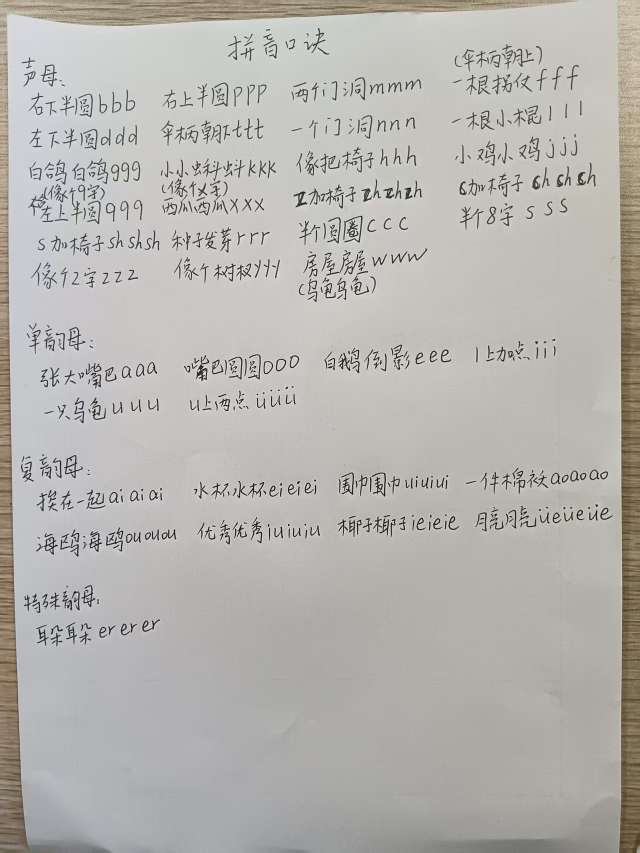 拼音口诀
声母：
(伞柄朝上)
右下半圆bbb 右上半圆ppp 两个门洞mmm 一根拐仗fff
左下半圆ddd 伞柄朝下ttt 一个门洞nnn 一根小棍lll
白鸽白鸽ggg 小小蝌蚪kkk 像把椅子hhh 小鸡小鸡jjj
(像个9字) (像个乂字)
左上半圆qqq 西瓜西瓜xxx z加椅子zhzhzh c加椅子chchch
s加椅子shshsh 种子发芽rrr 半个圆圈ccc 半个8字sss
像个2字zzz 像个树杈yyy 房屋房屋www
(乌龟乌龟)
单韵母：
张大嘴巴aaa 嘴巴圆圆ooo 白鹅倒影eee l上加点iii
一只乌龟uuu u上两点üüü
复韵母：
挨在一起aiaiai 水杯水杯eieiei 围巾围巾uiuiui 一件棉袄aoaoao
海鸥海鸥ououou 优秀优秀iuiuiu 椰子椰子ieieie 月亮月亮üeüeüe
特殊韵母：
耳朵耳朵ererer